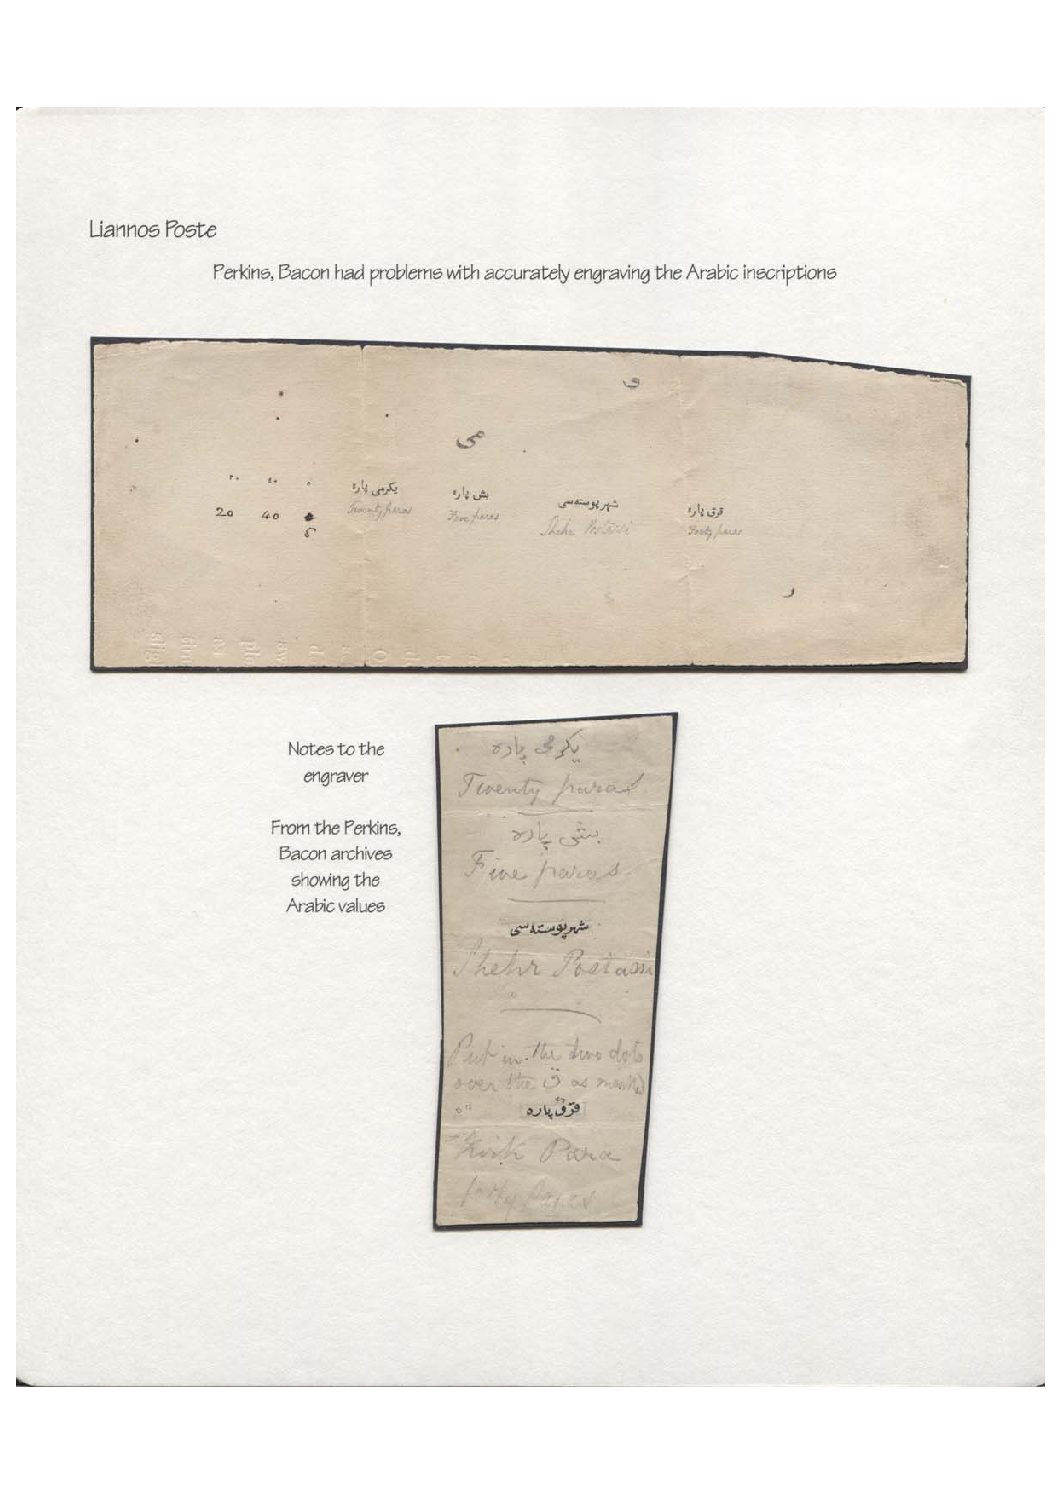 Liannos Poste
Perkins, Bacon had problems with accurately engraving the Arabic inscriptions
ف
می
٢٠ ٤٠ ٥
20 40 5
یکرمی پاره بش پاره شهر پوسته‌سی قرق پاره
Twenty paras Five paras Shehr Postassi Forty paras
ر
Notes to the
engraver
From the Perkins,
Bacon archives
showing the
Arabic values
یکرمی پاره
Twenty paras
بش پاره
Five paras
شهر پوسته‌سی
Shehr Postassi
Put in the two dots
over the ق as marked
قرق پاره
Kirk Para
forty Paras